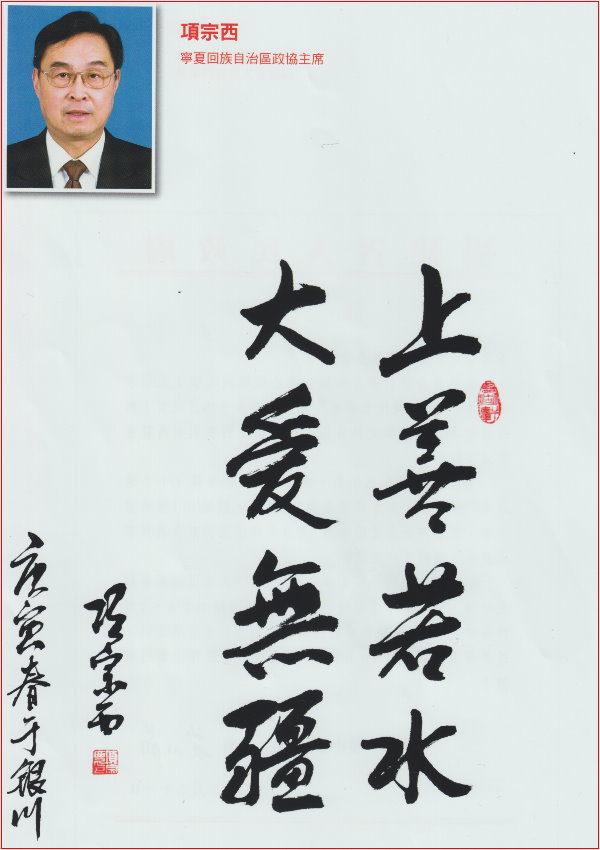 項宗西
寧夏回族自治區政協主席
上善若水
大愛無疆
項宗西
庚寅春于銀川